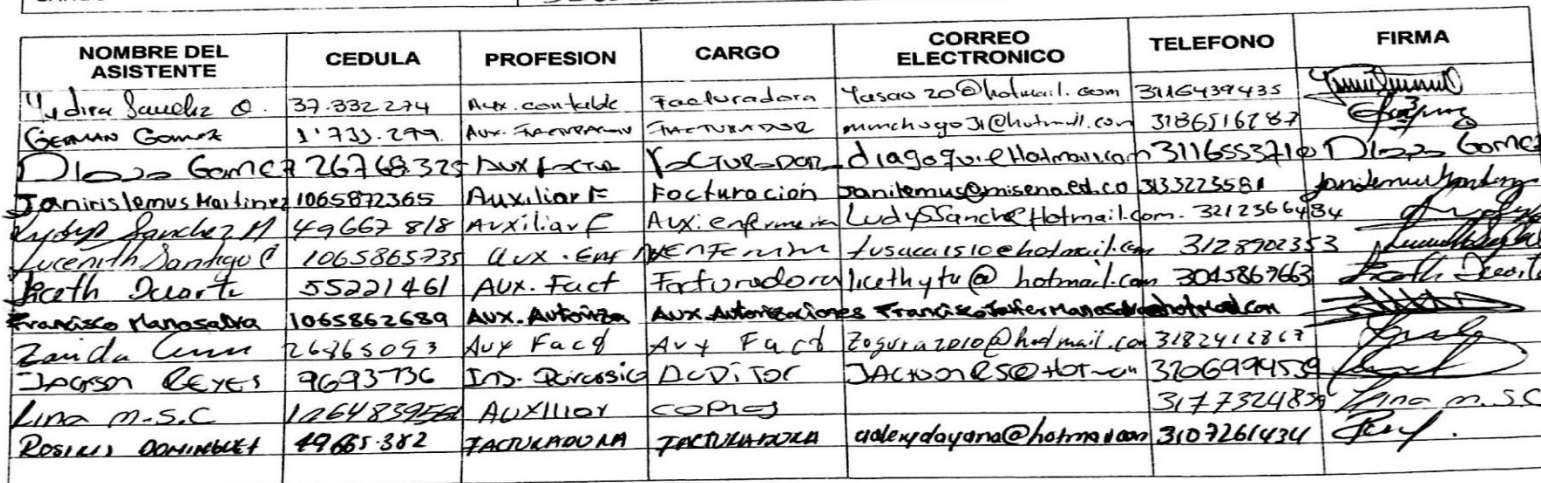 NOMBRE DEL ASISTENTE CEDULA PROFESION CARGO CORREO ELECTRONICO TELEFONO FIRMA
Yudira Sanchez O. 37.332.274 Aux. contable Facturadora Yasao20@hotmail.com 3116439435
GERMAN GOMEZ 1'733.279 AUX. FACTURACION FACTURADOR mmchugo31@hotmail.com 3186516287
Gomez 26768325 AUX FACTUR FACTURADOR diagoqui@Hotmail.com 3116553710 Gomez
Janiris lemus Martinez 1065872365 Auxiliar F Facturacion janilemus@misena.ed.co 3133223581
Ludys Sanchez M 49667 818 Auxiliar E Aux. enfermeria LudysSanche@Hotmail.com. 3212366484
Lucenith Santiago C 1065865735 aux. Enf AUX ENFERMERIA lusaca1510@hotmail.com 3128902353
Liceth Duarte 55221461 AUX. Fact Facturadora licethytu@hotmail.com 3045867663 Liceth Duarte
Francisco Manosalva 1065862689 AUX. Autoriza AUX Autorizaciones FranciscoJavierManosalva@hotmail.con
Zaida 26865093 Aux Fact Aux Fact Zogura2010@hotmail.com 3182412867
JACKSON REYES 9693736 AUDITOR 3206994539
Lina M.S.C AUXILIAR COPIAS 3177324839 Lina M.S.C
ROSIRIS DOMINGUEZ 49665.382 FACTURADORA FACTURADORA aalexydayana@hotmail.com 3107261434